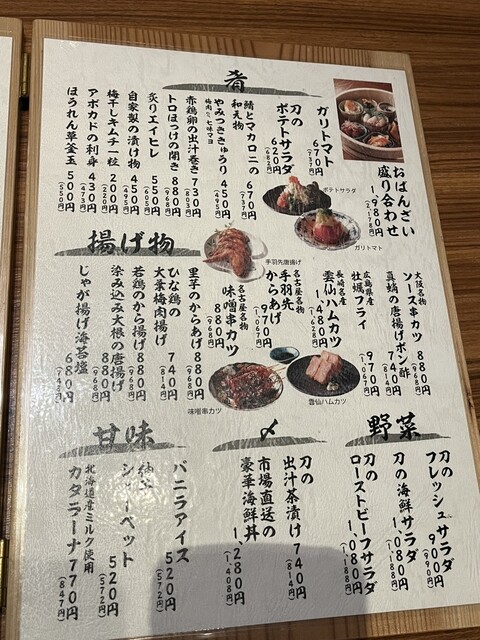 肴
おばんざい
盛り合わせ
1,980円
(2,178円)
ガリトマト
670円
(737円)
刀の
ポテトサラダ
620円
(682円)
鯖とマカロニの
和え物
670円
(737円)
やみつききゅうり
梅肉 or 七味マヨ
450円
(495円)
赤鶏卵の出汁巻き
730円
(803円)
トロほっけの開き
880円
(968円)
炙りエイヒレ
550円
(605円)
自家製の漬け物
450円
(495円)
梅干しキムチ一粒
200円
(220円)
アボカドの刺身
430円
(473円)
ほうれん草釜玉
500円
(550円)
ポテトサラダ
ガリトマト
揚げ物
手羽先唐揚げ
大阪名物
ソース串カツ
880円
(968円)
真鯒の唐揚げポン酢
740円
(814円)
広島県産
牡蠣フライ
970円
(1,067円)
長崎名産
雲仙ハムカツ
1,480円
(1,628円)
名古屋名物
手羽先
からあげ
970円
(1,067円)
名古屋名物
味噌串カツ
880円
(968円)
里芋のからあげ
880円
(968円)
ひな鶏の
大葉梅肉揚げ
740円
(814円)
若鶏のから揚げ
880円
(968円)
染み込み大根の唐揚げ
880円
(968円)
じゃが揚げ海苔塩
680円
(748円)
味噌串カツ
雲仙ハムカツ
野菜
刀の
フレッシュサラダ
900円
(990円)
刀の海鮮サラダ
1,080円
(1,188円)
刀の
ローストビーフサラダ
1,080円
(1,188円)
〆
刀の
出汁茶漬け
740円
(814円)
市場直送の
豪華海鮮丼
1,280円
(1,408円)
甘味
バニラアイス
520円
(572円)
シャーベット
520円
(572円)
北海道産ミルク使用
カタラーナ
770円
(847円)